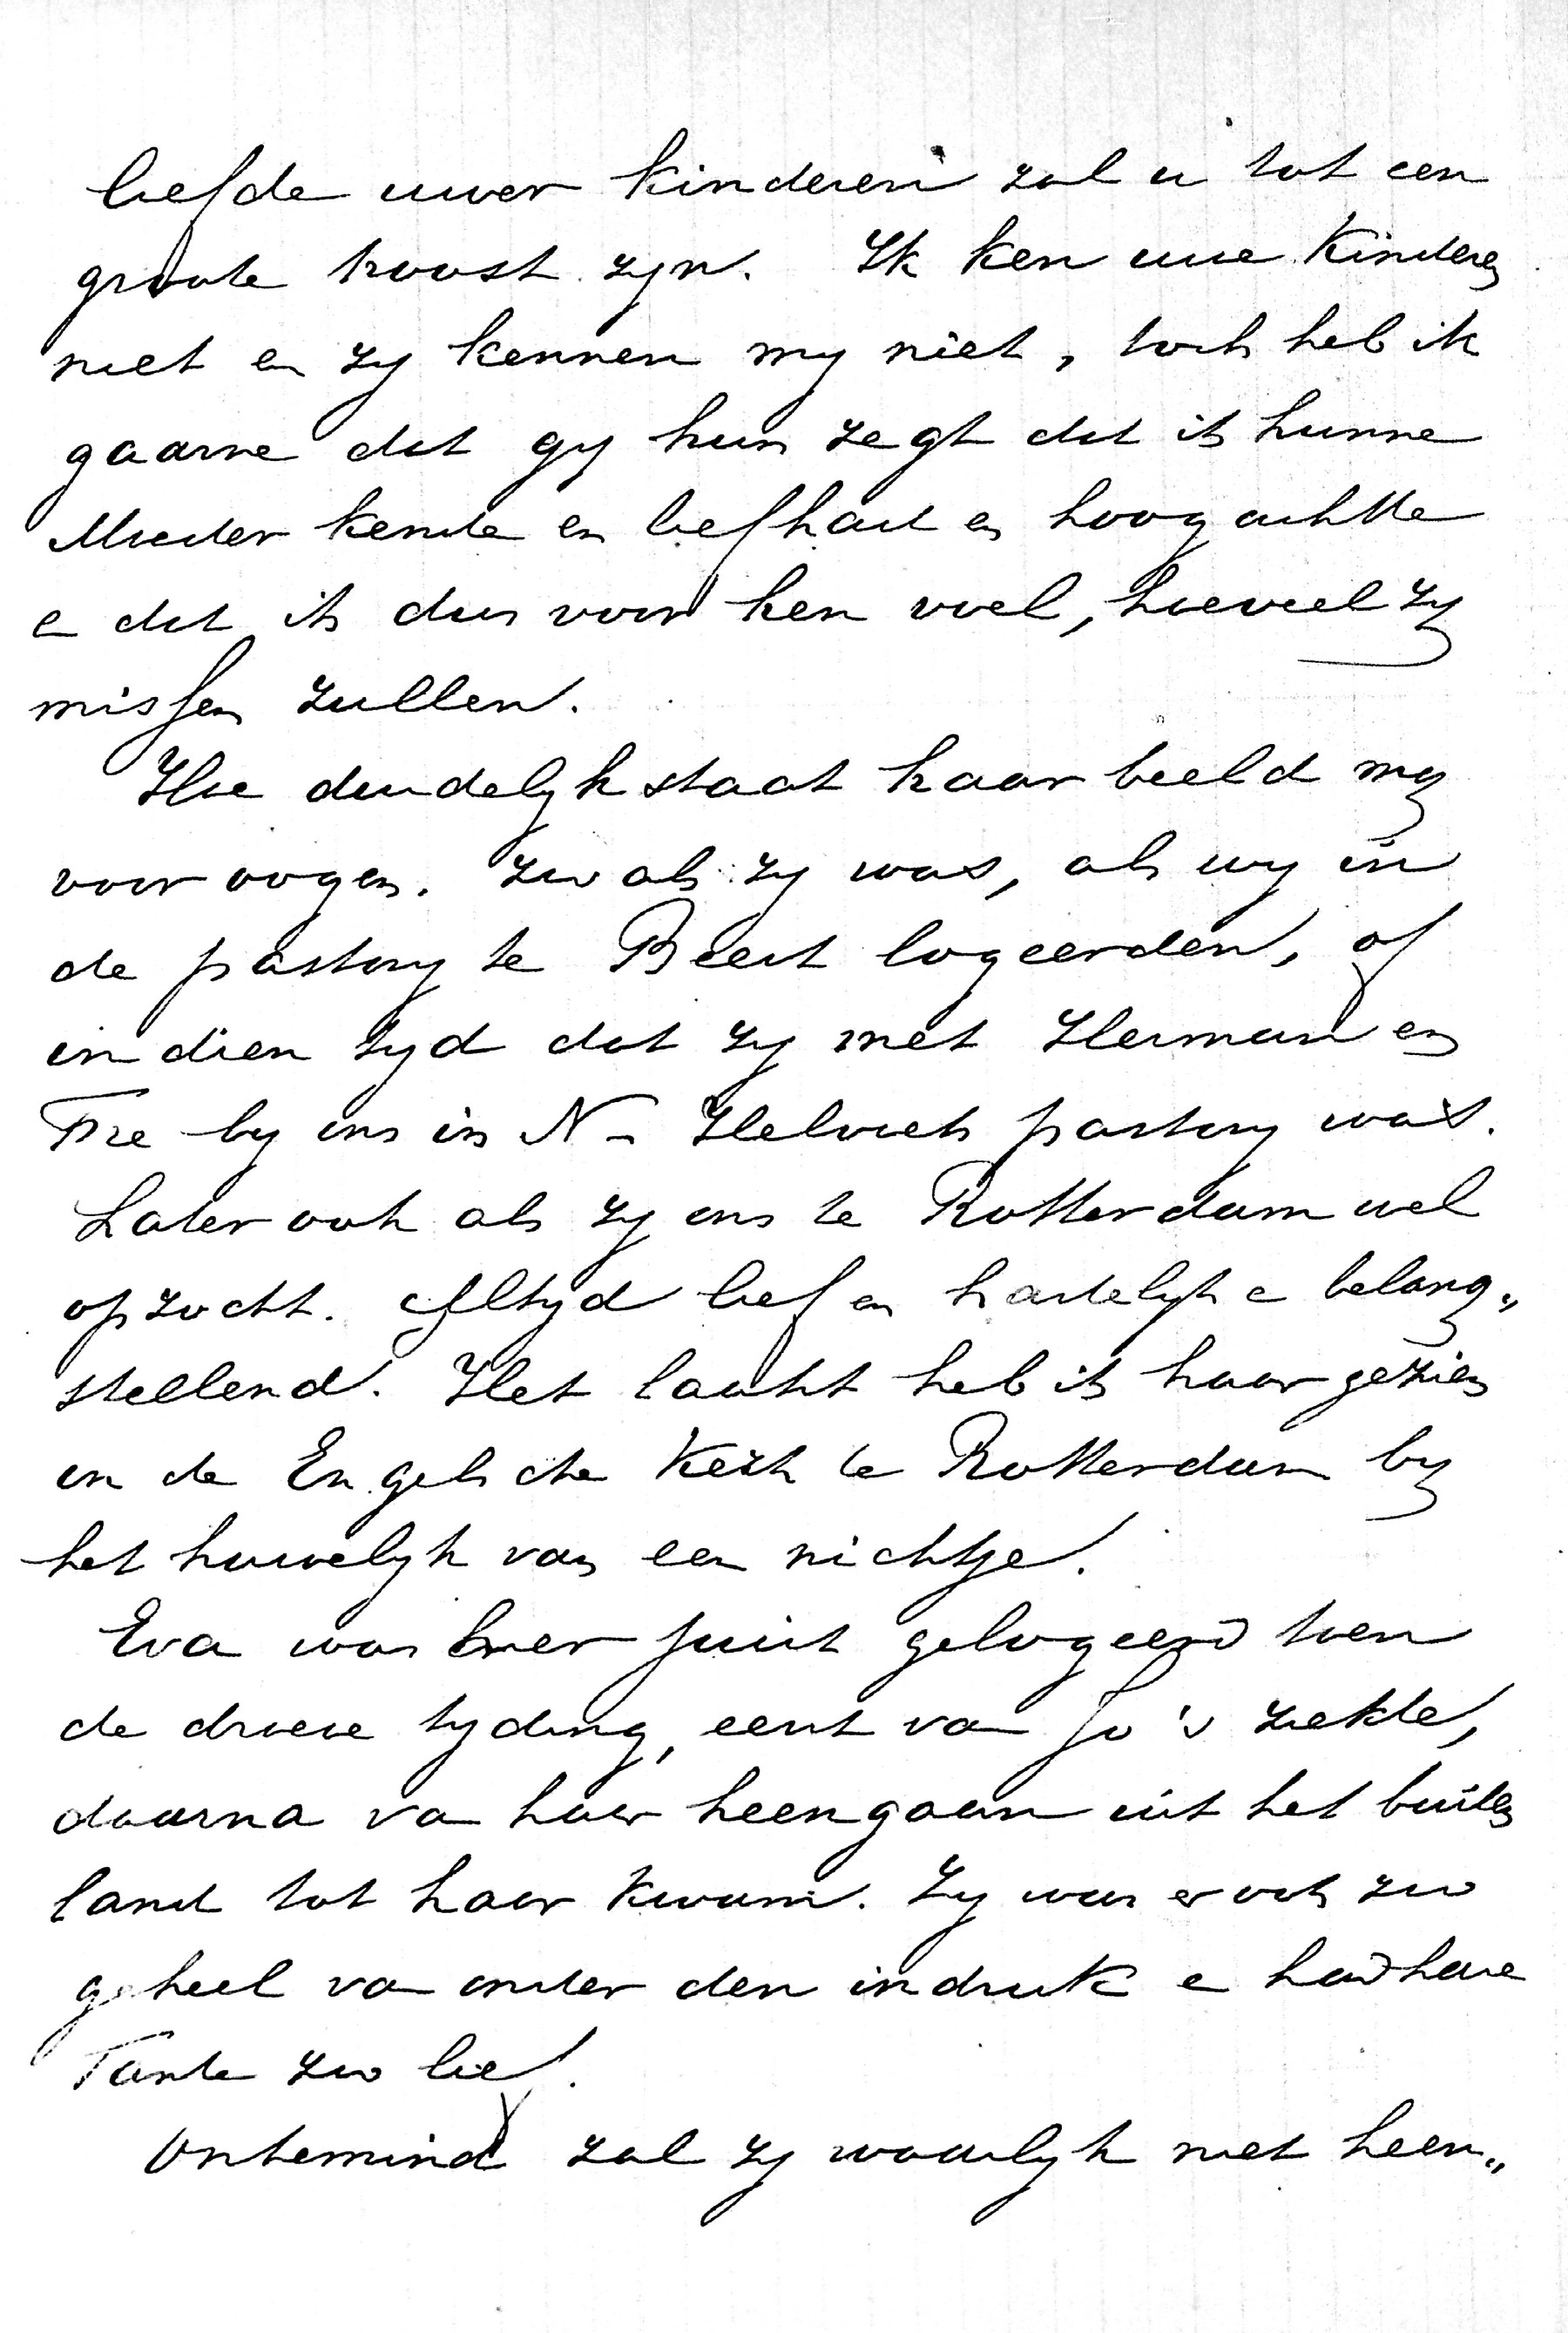 liefde uwer kinderen zal u tot een
groote troost zijn. Ik ken uwe kinderen
niet en zij kennen mij niet, toch heb ik
gaarne dat gij hun zegt dat ik hunne
Moeder kende en liefhad en hoogachtte
en dat ik dus voor hen voel, hoeveel zij
missen zullen.
Hoe duidelijk staat haar beeld mij
voor oogen. Zoo als zij was, als wij in
de pastorij te Beest logeerden, of
in dien tijd dat zij met Herman en
by ons in N- Helvoets pastorij was.
Later ook als zij ons te Rotterdam wel
opzocht. Altijd lief en hartelijk en belang„
stellend. Het laatst heb ik haar gezien
in de Engelsche Kerk te Rotterdam bij
het huwelijk van een nichtje.
Eva was hier juist gelogeerd toen
de droeve tijding, eerst van Jo's ziekte,
daarna van haar heengaan uit het buiten
land tot haar kwam. Zij was er ook zoo
geheel van onder den indruk en had hare
Tante zoo lief.
Onbemind zal zij waarlijk niet heen„